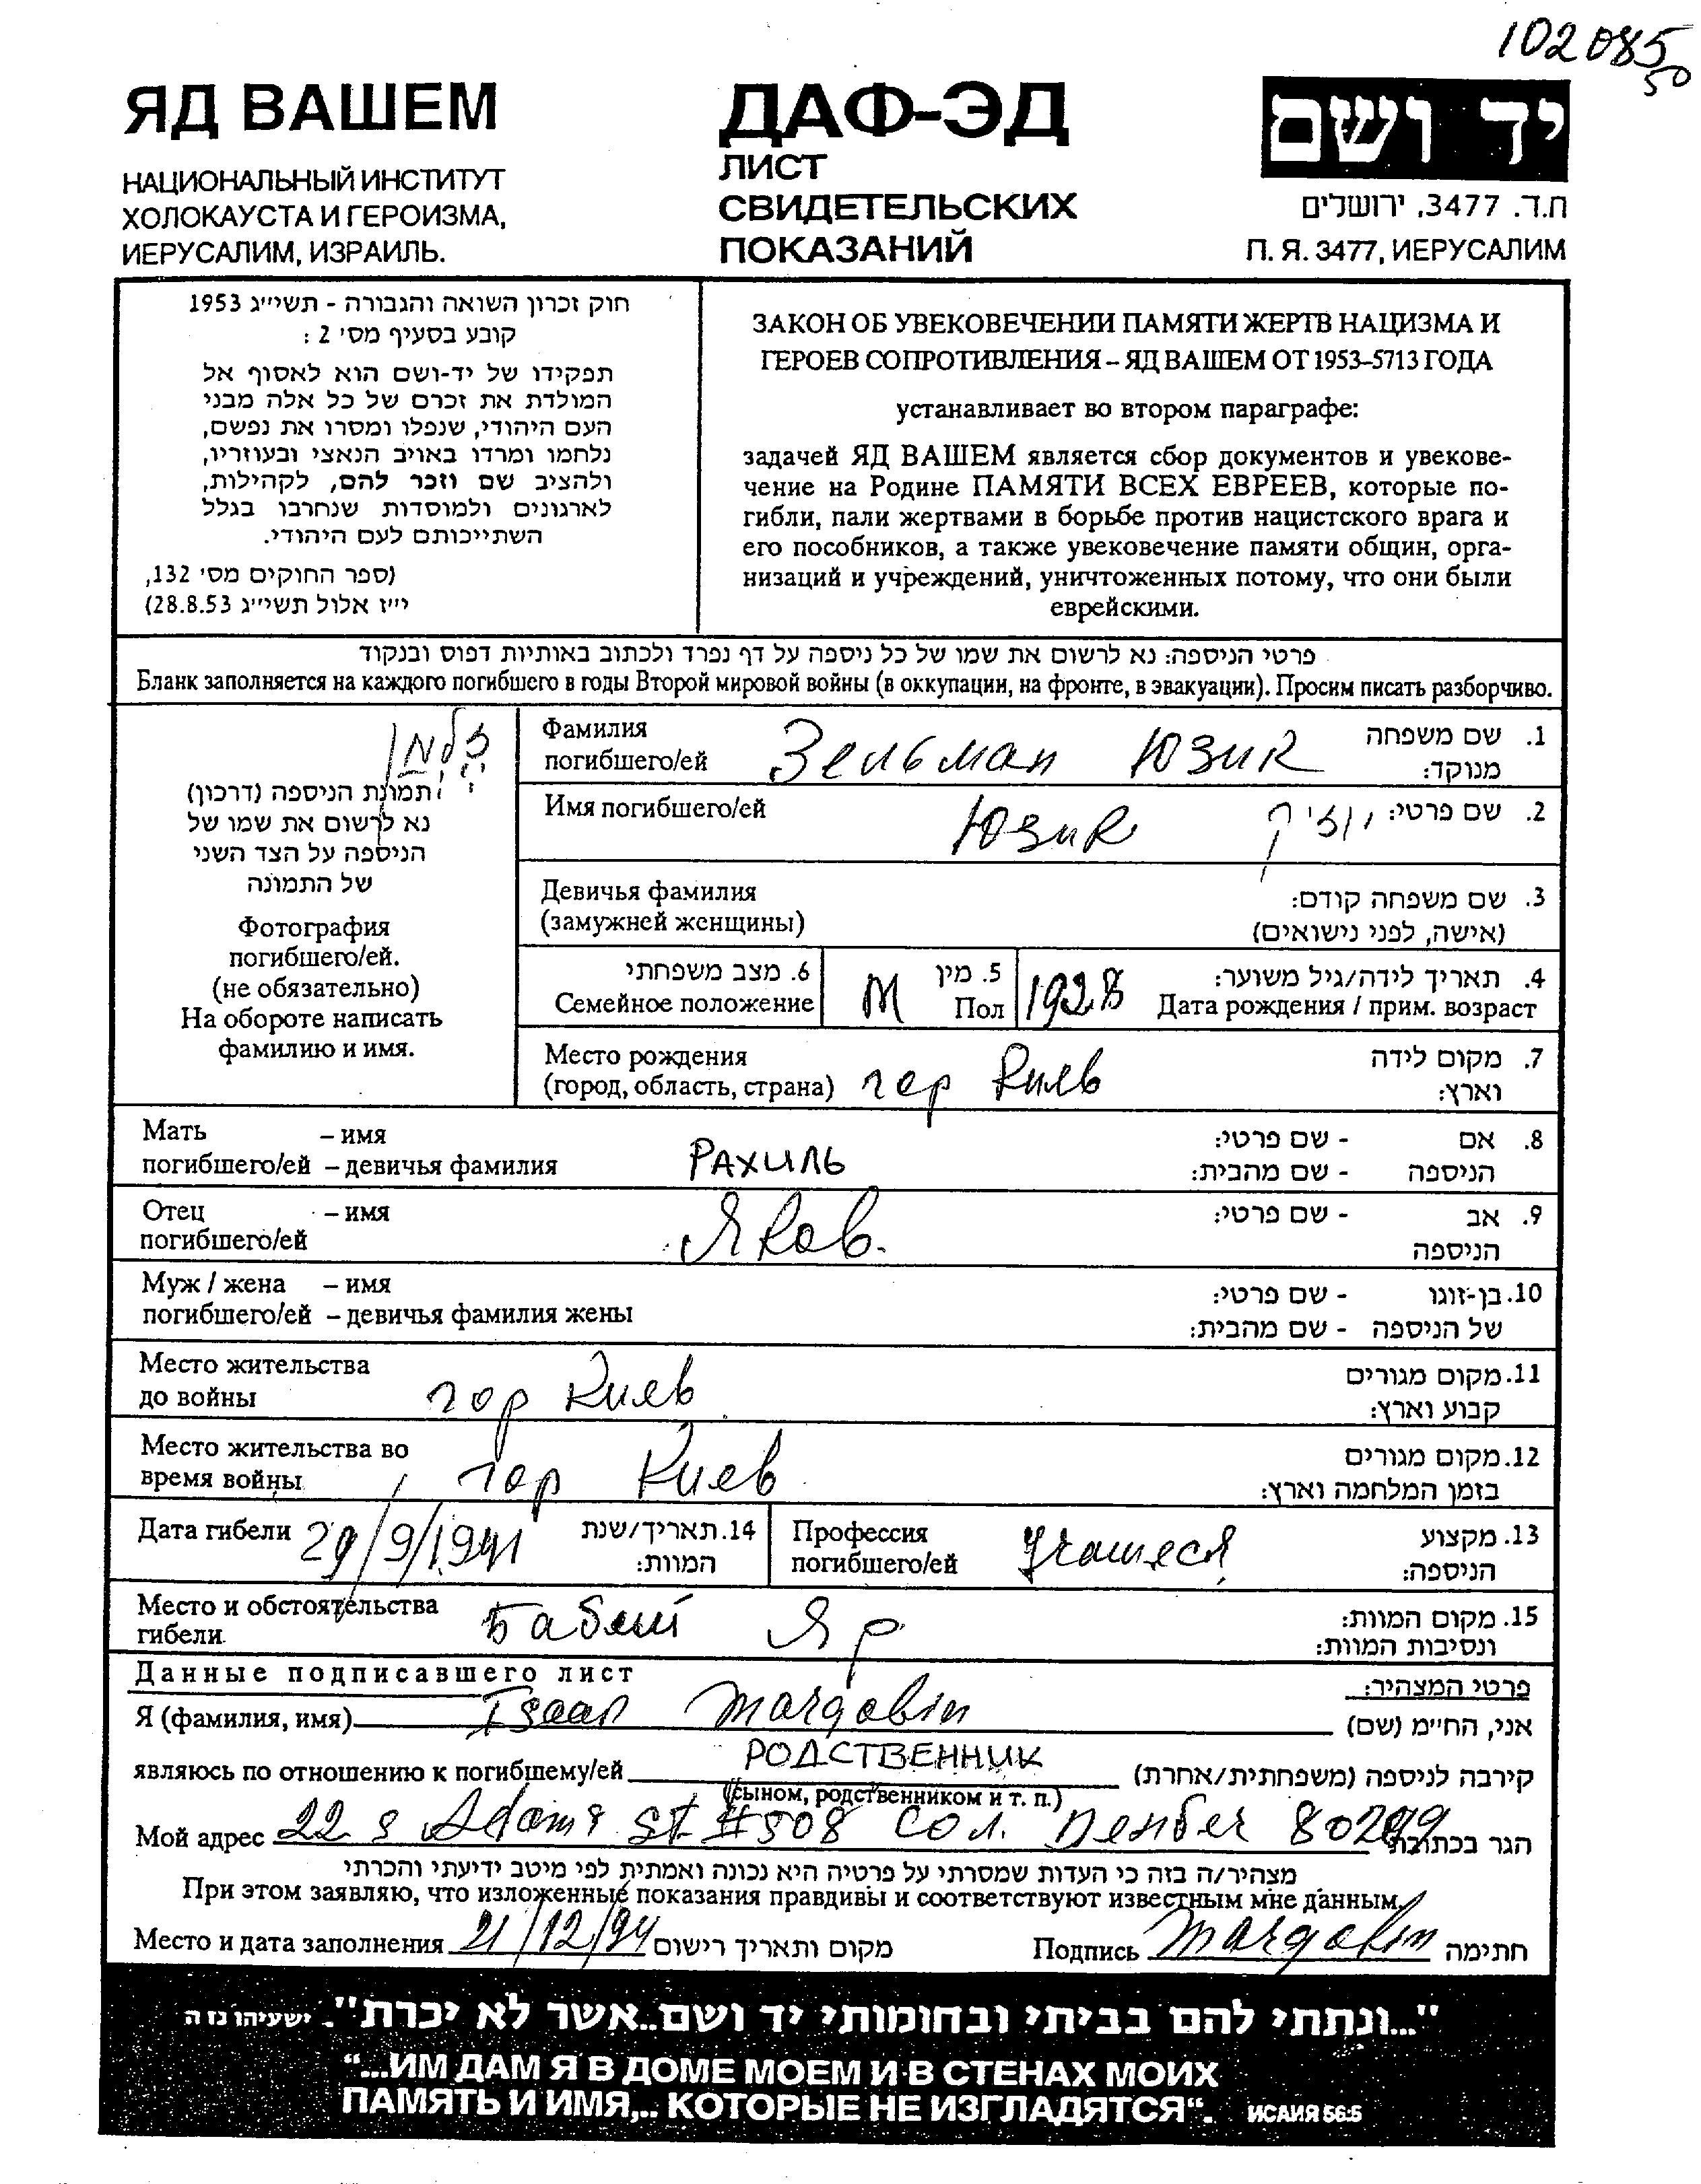 102085
50
ЯД ВАШЕМ
НАЦИОНАЛЬНЫЙ ИНСТИТУТ
ХОЛОКАУСТА И ГЕРОИЗМА,
ИЕРУСАЛИМ, ИЗРАИЛЬ.
ДАФ-ЭД
ЛИСТ
СВИДЕТЕЛЬСКИХ
ПОКАЗАНИЙ
יד ושם
ת.ד. 3477, ירושלים
П. Я. 3477, ИЕРУСАЛИМ
חוק זכרון השואה והגבורה - תשי״ג 1953
קובע בסעיף מס׳ 2 :
תפקידו של יד-ושם הוא לאסוף אל
המולדת את זכרם של כל אלה מבני
העם היהודי, שנפלו ומסרו את נפשם,
נלחמו ומרדו באויב הנאצי ובעוזריו,
ולהציב שם וזכר להם, לקהילות,
לארגונים ולמוסדות שנחרבו בגלל
השתייכותם לעם היהודי.
(ספר החוקים מס׳ 132,
י״ז אלול תשי״ג 28.8.53)
ЗАКОН ОБ УВЕКОВЕЧЕНИИ ПАМЯТИ ЖЕРТВ НАЦИЗМА И
ГЕРОЕВ СОПРОТИВЛЕНИЯ – ЯД ВАШЕМ ОТ 1953–5713 ГОДА
устанавливает во втором параграфе:
задачей ЯД ВАШЕМ является сбор документов и увекове-
чение на Родине ПАМЯТИ ВСЕХ ЕВРЕЕВ, которые по-
гибли, пали жертвами в борьбе против нацистского врага и
его пособников, а также увековечение памяти общин, орга-
низаций и учреждений, уничтоженных потому, что они были
еврейскими.
פרטי הניספה: נא לרשום את שמו של כל ניספה על דף נפרד ולכתוב באותיות דפוס ובנקוד
Бланк заполняется на каждого погибшего в годы Второй мировой войны (в оккупации, на фронте, в эвакуации). Просим писать разборчиво.
זלמן
תמונת הניספה (דרכון)
נא לרשום את שמו של
הניספה על הצד השני
של התמונה
Фотография
погибшего/ей.
(не обязательно)
На обороте написать
фамилию и имя.
Фамилия
погибшего/ей Зельман Юзик
1. שם משפחה
מנוקד:
Имя погибшего/ей Юзик יוזיק 2. שם פרטי:
Девичья фамилия
(замужней женщины)
3. שם משפחה קודם:
(אישה, לפני נישואים)
6. מצב משפחתי
Семейное положение
М
5. מין
Пол
1928
4. תאריך לידה/גיל משוער:
Дата рождения / прим. возраст
Место рождения
(город, область, страна) гор Киев
7. מקום לידה
וארץ:
Мать – имя
погибшего/ей – девичья фамилия РАХИЛЬ
8. אם - שם פרטי:
הניספה - שם מהבית:
Отец – имя
погибшего/ей Яков.
9. אב - שם פרטי:
הניספה
Муж / жена – имя
погибшего/ей – девичья фамилия жены
10. בן-זוגו - שם פרטי:
של הניספה - שם מהבית:
Место жительства
до войны гор Киев
11. מקום מגורים
קבוע וארץ:
Место жительства во
время войны гор Киев
12. מקום מגורים
בזמן המלחמה וארץ:
Дата гибели 29/9/1941
14. תאריך/שנת
המוות:
Профессия
погибшего/ей Учащеся
13. מקצוע
הניספה:
Место и обстоятельства
гибели. Бабий Яр
15. מקום המוות:
ונסיבות המוות:
Данные подписавшего лист
פרטי המצהיר:
Я (фамилия, имя) Isaak Margolin אני, החי״מ (שם)
являюсь по отношению к погибшему/ей РОДСТВЕННИК קירבה לניספה (משפחתית/אחרת)
(сыном, родственником и т. п.)
Мой адрес 22 S Adams st #508 הגר בכתובת
מצהיר/ה בזה כי העדות שמסרתי על פרטיה היא נכונה ואמתית לפי מיטב ידיעתי והכרתי
При этом заявляю, что изложенные показания правдивы и соответствуют известным мне данным.
Место и дата заполнения 21/12/94 מקום ותאריך רישום Подпись Margolin חתימה
"...ונתתי להם בביתי ובחומותי יד ושם..אשר לא יכרת". ישעיהו נז ה
“...ИМ ДАМ Я В ДОМЕ МОЕМ И В СТЕНАХ МОИХ
ПАМЯТЬ И ИМЯ,.. КОТОРЫЕ НЕ ИЗГЛАДЯТСЯ“. ИСАИЯ 56:5